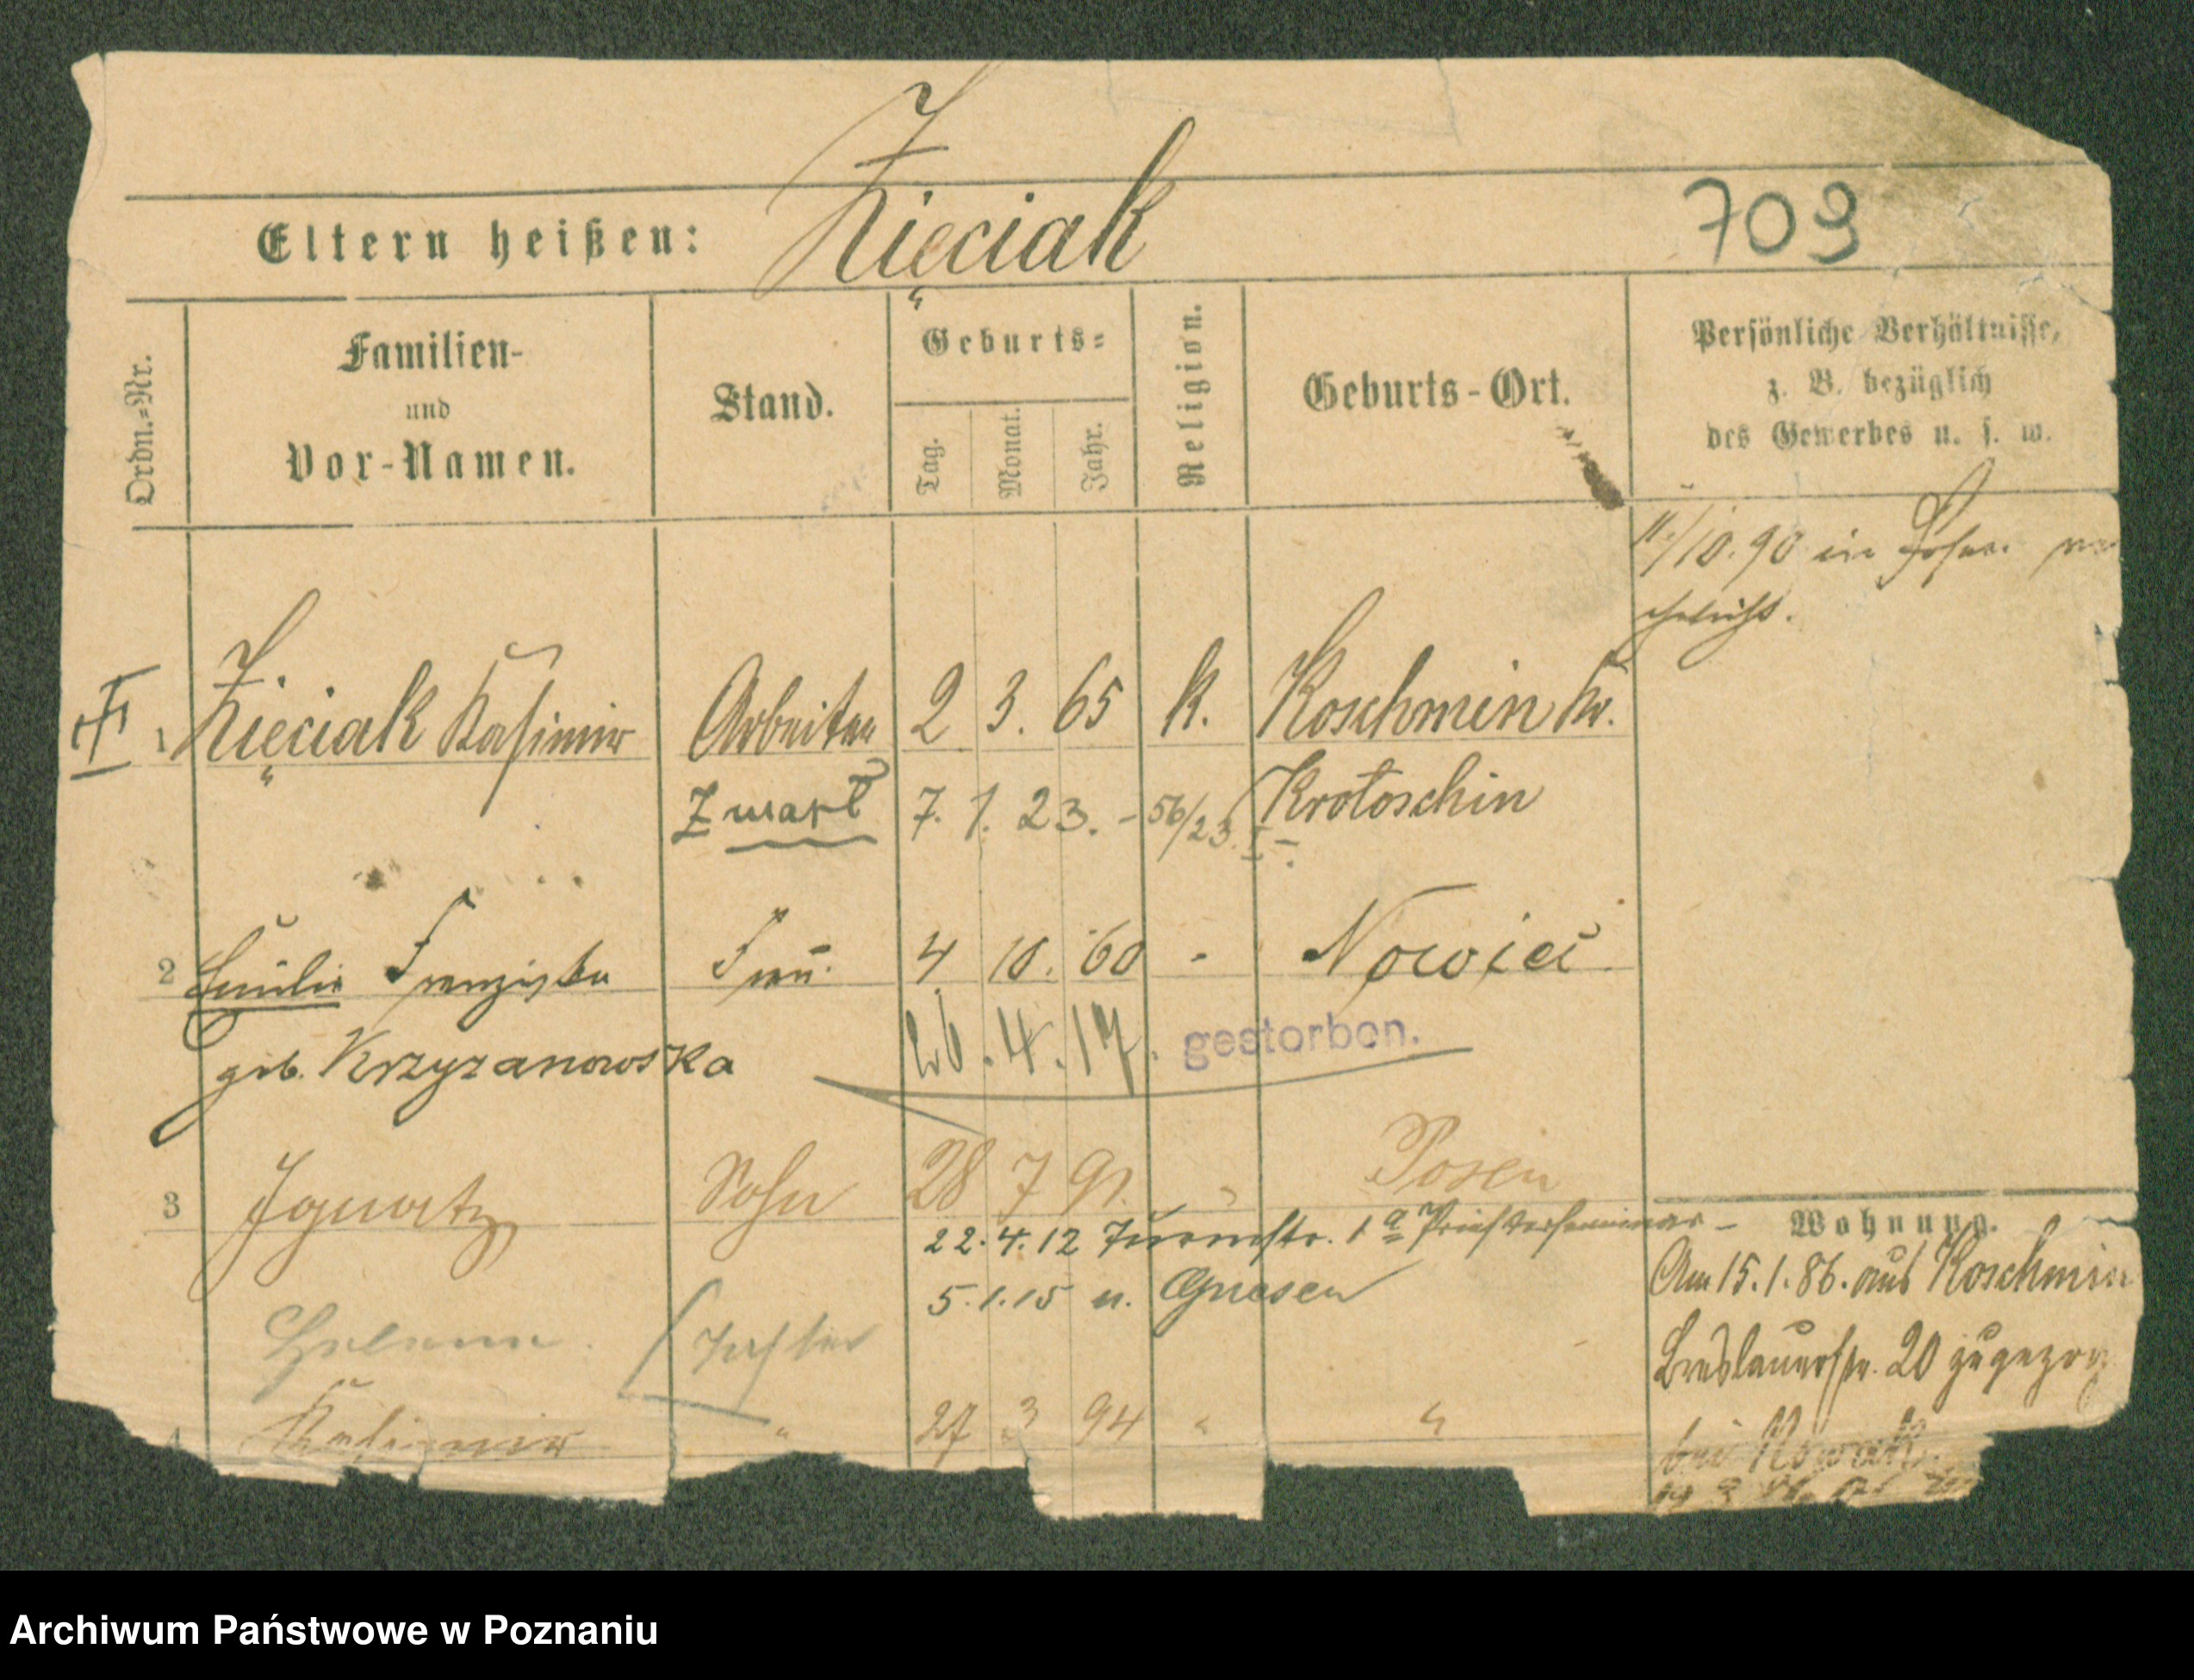 Zięciak
Eltern heißen:
709
Ordn.=Nr.
Familien-
und
Vor-Namen.
Stand.
Geburts=
Tag.
Monat.
Jahr.
Religion.
Geburts-Ort.
Persönliche Verhältnisse,
z. B. bezüglich
des Gewerbes u. s. w.
11/10.90 in Posen ver
ehelicht.
1 Zięciak Kasimir Arbeiter 2 3. 65 k. Koschmin Kr.
Krotoschin
Zmarł 7. 1. 23. - 56/23.
2 Emilie Franziska Frau. 4 10. 60 - Nowieć
geb. Krzyzanowska
26.4.17. gestorben.
3 Ignatz Sohn 28 7 91. " Posen
22.4.12 Turmstr. 1a Priesterseminar -
5.1.15 n. Gnesen
Wohnung.
Am 15.1.86. aus Koschmin
Breslauerstr. 20 zugezog
bei Nowak.
Helena
4 Kasimir " 27 3 94 " "
Archiwum Państwowe w Poznaniu